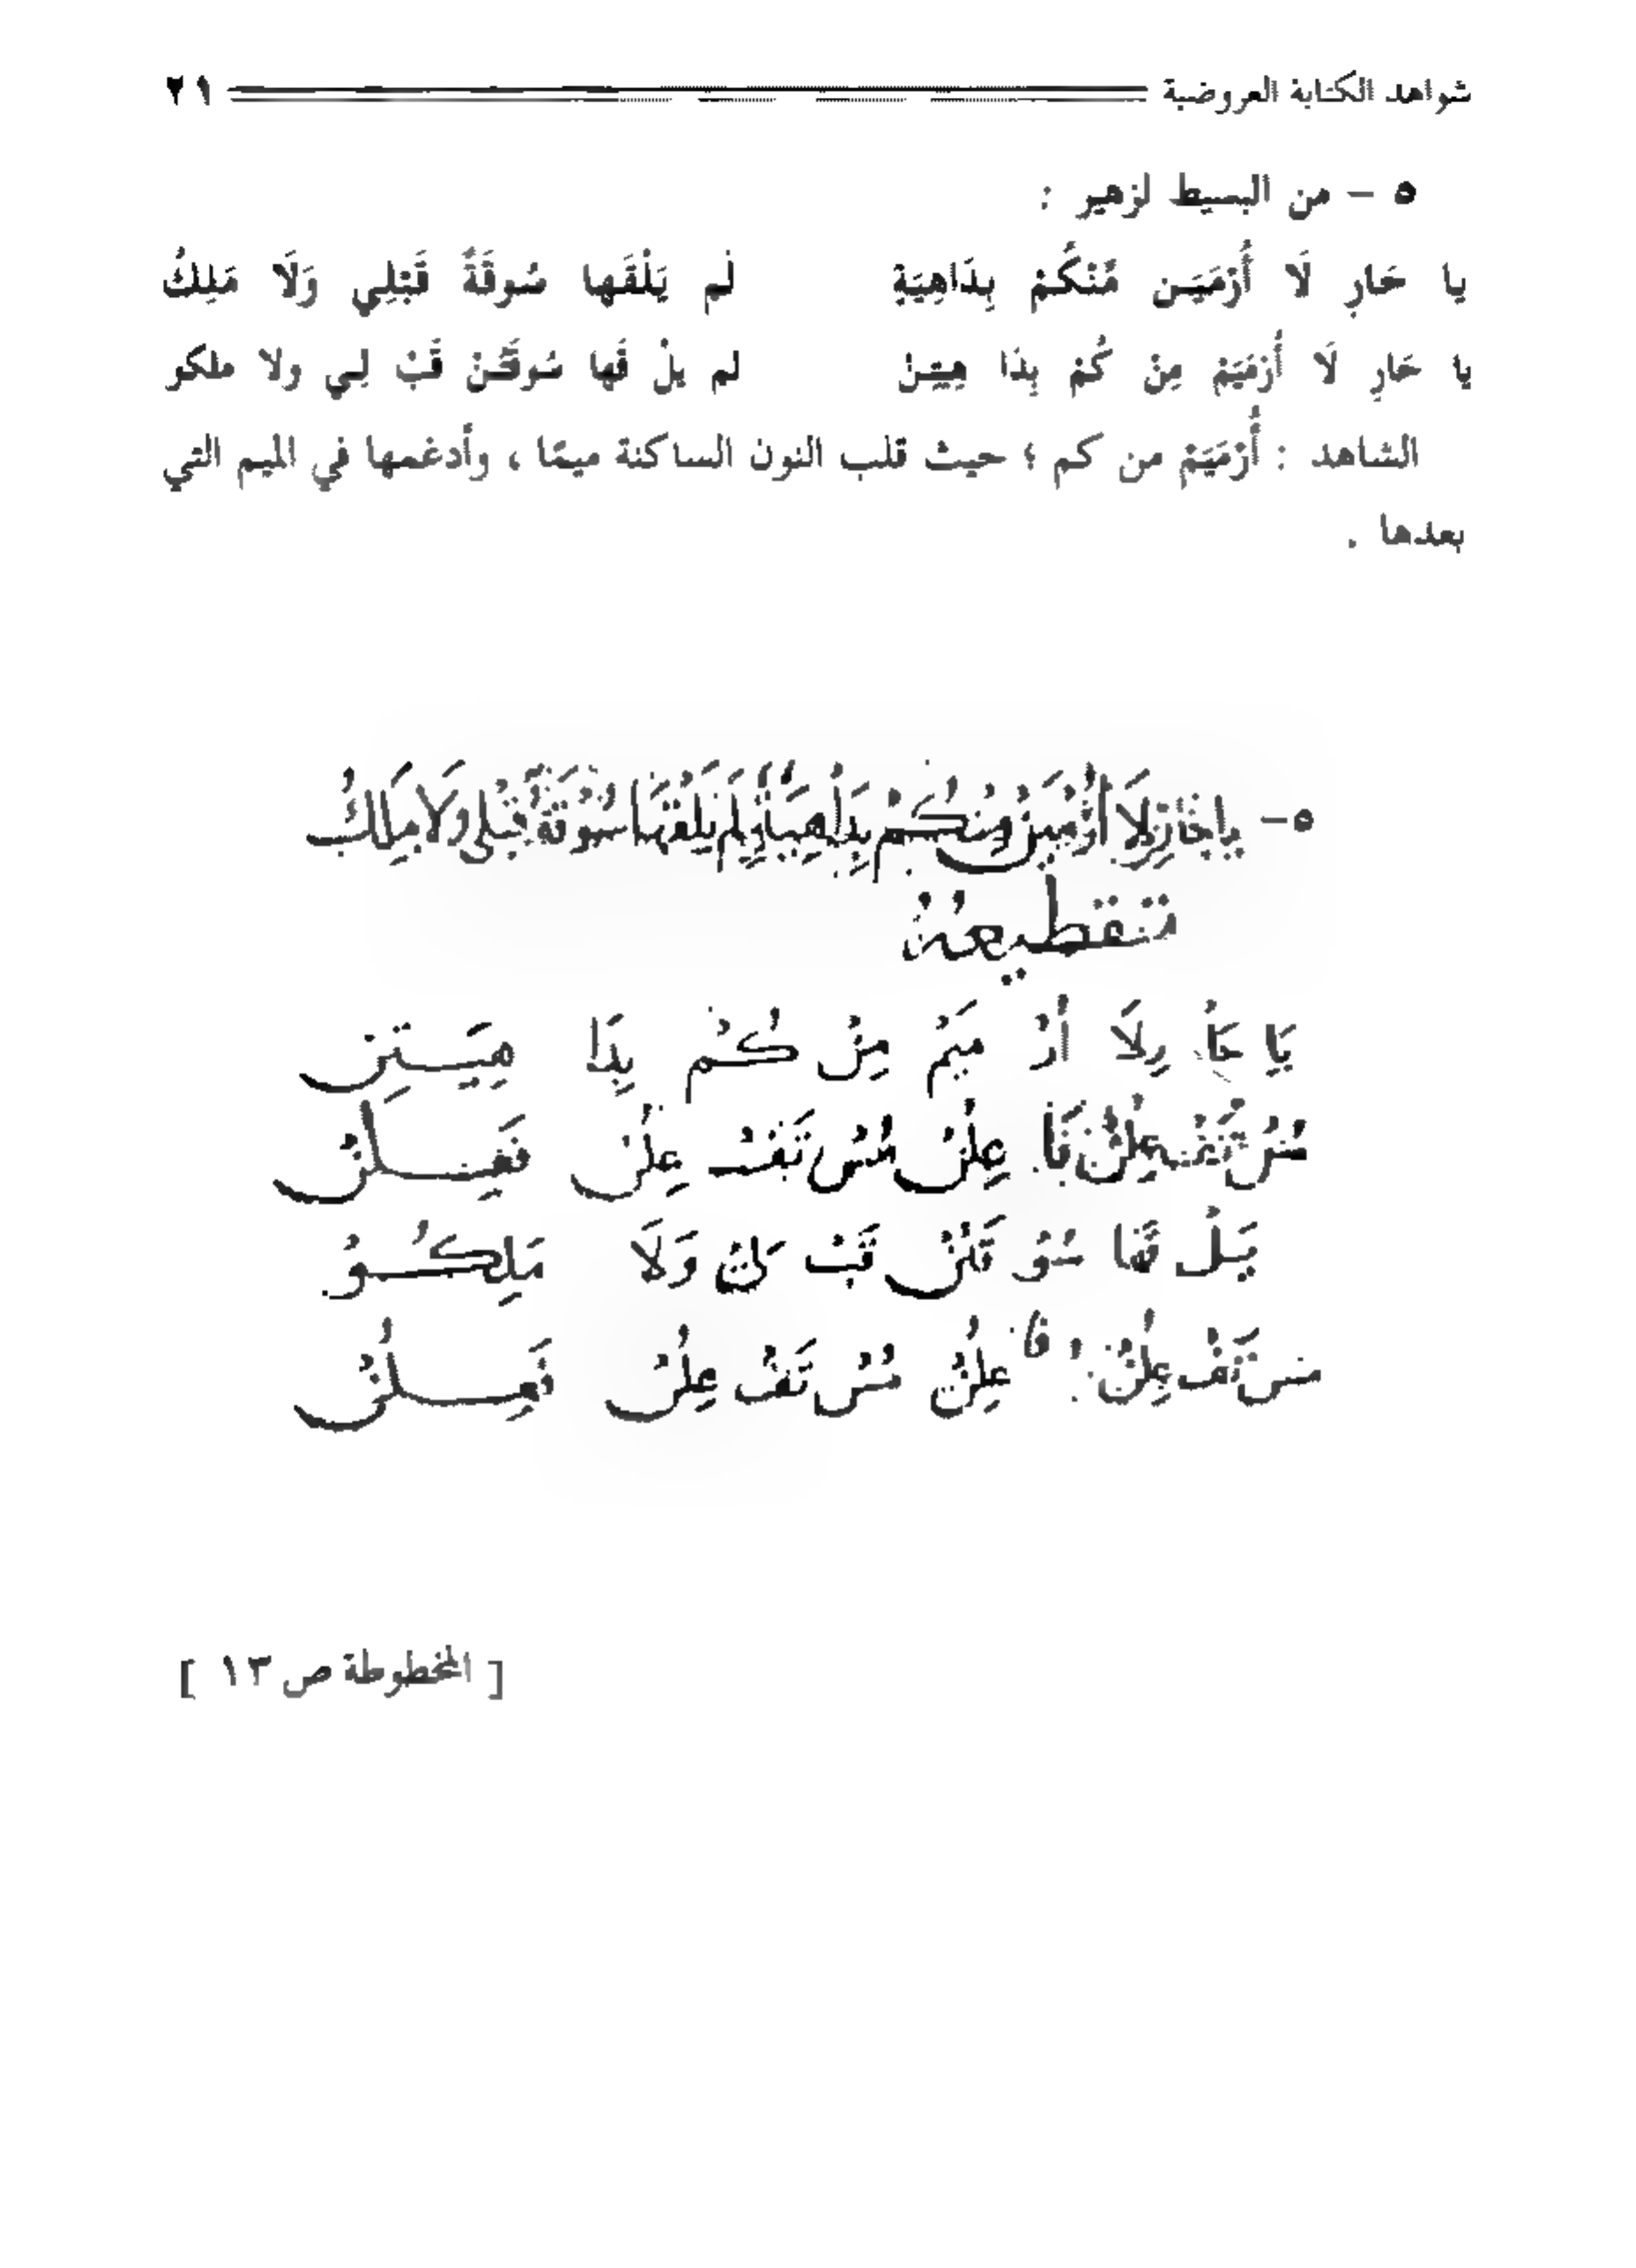 شواهد الكتابة العروضية ٢١
٥ - من البسيط لزهير :
يا حَارِ لَا أُرْمَيَـن مِّنْكُمْ بِدَاهِيَةٍ لَم يَلْقَها سُوقَةٌ قَبْلِي وَلَا مَلِكُ
يا حَارِ لَا أُرْمَيَمْ مِنْ كُمْ بِذَا هِيَتِنْ لم يلْ قَها سُوقَتُنْ قَبْ لِي ولا ملكو
الشاهد : أُرْمَيَمْ من كم ؛ حيث قلب النون الساكنة ميمًا ، وأدغمها في الميم التي
بعدها .
٥- يا حَارِ لَا أُرْمَيَنْ مِنْكُمْ بِدَاهِيَةٍ لَم يَلْقَهَا سُوقَةٌ قَبْلِي وَلَا مَلِكُ
تقطيعهُ
يَا حَا رِلَا أُرْ مَيَمْ مِنْ كُمْ بِدَا هِيَـتِنْ
مُسْ تَفْ عِلُنْ فَا عِلُنْ مُسْ تَفْ عِلُنْ فَعِـلُنْ
يَلْ قَهَا سُوْ قَتُنْ قَبْ لِيْ وَلَا مَلِكُـوْ
مس تَفْ عِلُنْ فا عِلُنْ مُسْ تَفْ عِلُنْ فَعِـلُنْ
[ المخطوطة ص ١٣ ]